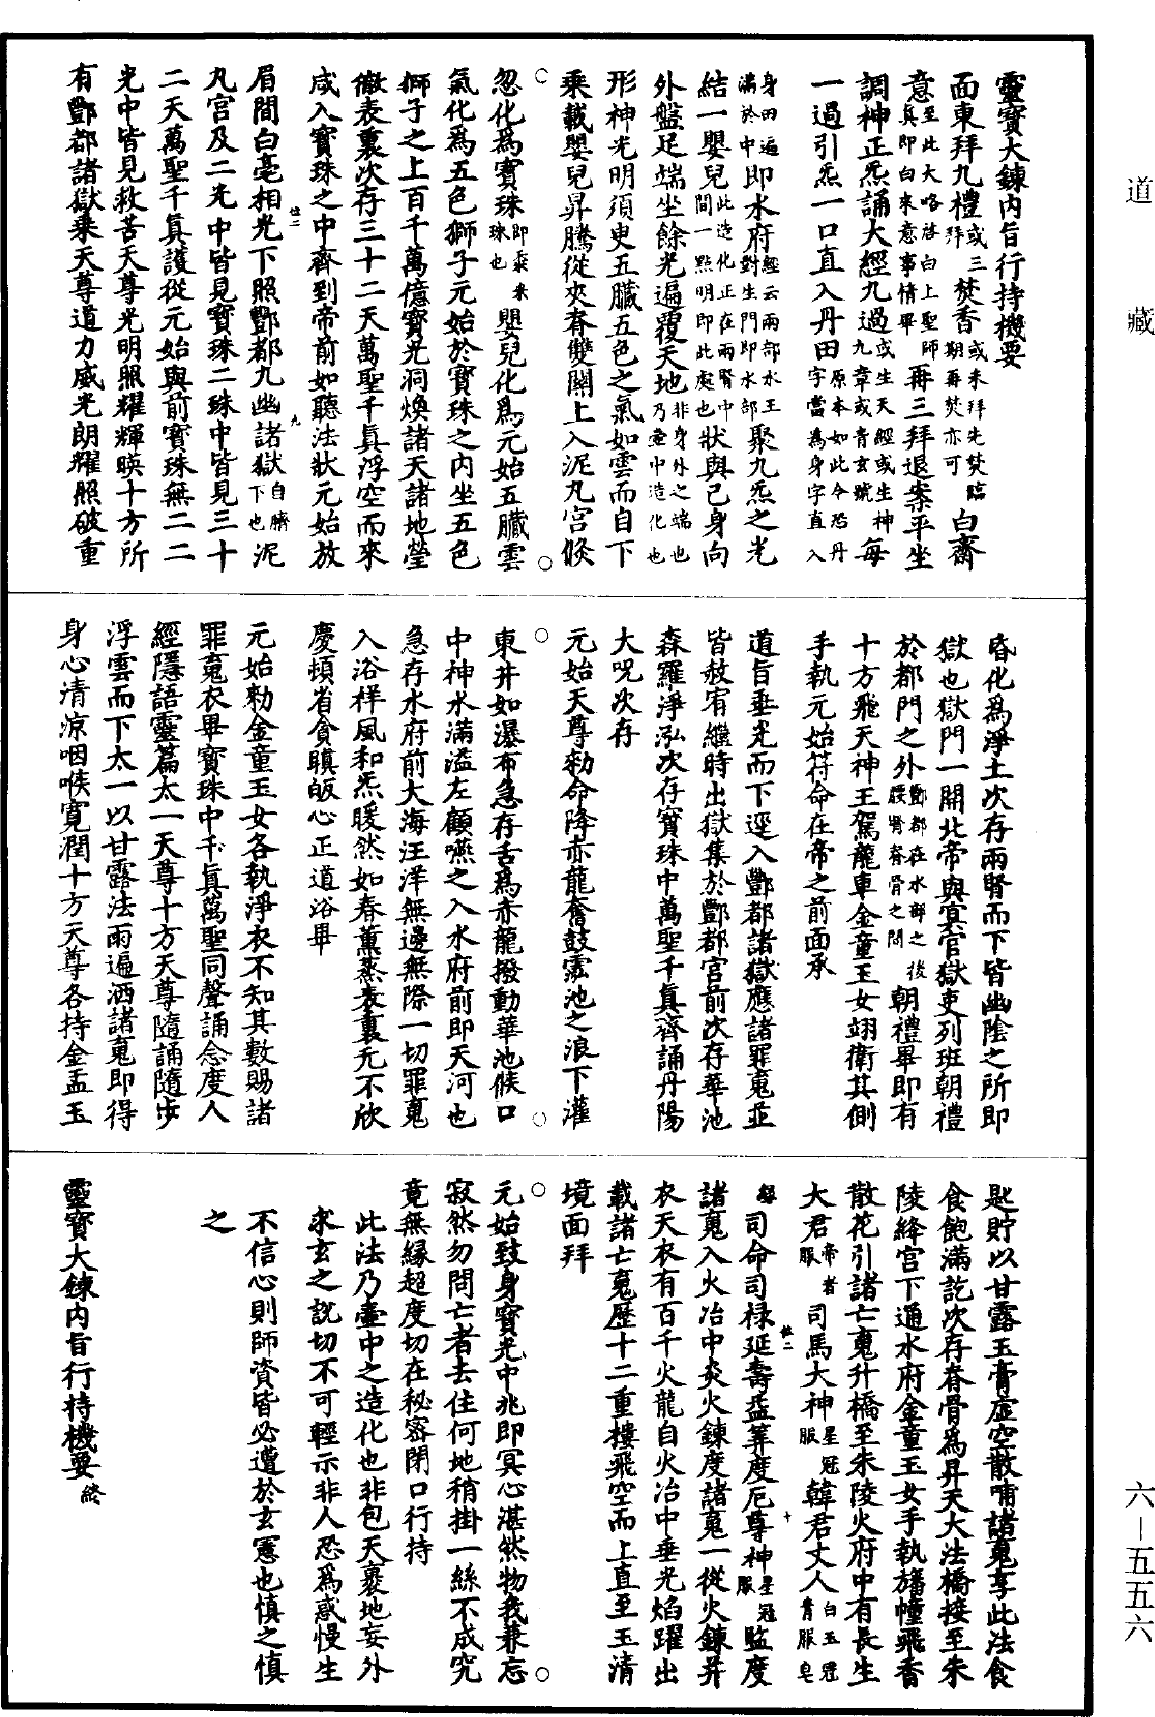 道藏
靈寶大鍊內旨行持機要
面東拜九禮或三拜焚香或未拜先焚臨期再焚亦可白齋
意至此大咯啓白上聖師真即白來意事情畢再三拜退案平坐
調神正炁誦大經九過或生天經或生神九章或青玄號每
一過引炁一口直入丹田原本如此今恐丹字當為身字直入
身田遍滿於中即水府經云兩部水王對生門即水部聚九炁之光
結一嬰兒此造化正在兩腎中間一點明即此處也狀與己身向
外盤足端坐餘光遍覆天地非身外之端也乃壺中造化也
形神光明須臾五臟五色之氣如雲而自下
乘載嬰兒昇騰從夾脊雙關上入泥丸宮倏
忽化為寶珠即黍米珠也嬰兒化為元始五臟雲
氣化為五色獅子元始於寶珠之內坐五色
獅子之上百千萬億寶光洞煥諸天諸地瑩
徹表裏次存三十二天萬聖千真浮空而來
咸入寶珠之中齊到帝前如聽法狀元始放
眉間白毫相光下照酆都九幽諸獄自臍下也泥
丸宮及二光中皆見寶珠二珠中皆見三十
二天萬聖千眞護從元始與前寶珠無二二
光中皆見救苦天尊光明照耀輝暎十方所
有酆都諸獄乘天尊道力威光朗耀照破重
昏化為淨土次存兩腎而下皆幽陰之所即
獄也獄門一開北帝與冥官獄吏列班朝禮
於都門之外酆都在水部之後腰腎脊骨之間朝禮畢即有
十方飛天神王駕龍車金童玉女翊衛其側
手執元始符命在帝之前面承
道旨垂光而下逕入酆都諸獄應諸罪䰟並
皆赦宥繼時出獄集於酆都宮前次存華池
森羅淨泓次存寶珠中萬聖千眞齊誦丹陽
大呪次存
元始天尊勑命降赤龍奮鼓靈池之浪下灌
東井如瀑布急存舌為赤龍撥動華池候口
中神水滿溢左顧嚥之入水府前即天河也
急存水府前大海汪洋無邊無際一切罪䰟
入浴祥風和炁暖然如春薰蒸表裏无不欣
慶頓省貪瞋皈心正道浴畢
元始勑金童玉女各執淨衣不知其數賜諸
罪䰟衣畢寶珠中千眞萬聖同聲誦念度人
經隱語靈篇太一天尊十方天尊隨誦隨步
浮雲而下太一以甘露法雨遍洒諸䰟即得
身心清涼咽喉寬潤十方天尊各持金盂玉
匙貯以甘露玉膏虛空散哺諸䰟享此法食
食飽滿訖次存脊骨為昇天大法橋接至朱
陵絳宮下通水府金童玉女手執旛幢飛香
散花引諸亡䰟升橋至朱陵火府中有長生
大君帝者服司馬大神星冠服韓君丈人白玉冠青服皂
緣司命司禄延壽益筭度厄尊神星冠服監度
諸䰟入火冶中炎火鍊度諸䰟一從火鍊并
衣天衣有百千火龍自火冶中垂光焰躍出
載諸亡䰟歷十二重樓飛空而上直至玉清
境面拜
元始致身寶光中兆即冥心湛然物我兼忘
寂然勿問亡者去住何地稍掛一絲不成究
竟無緣超度切在秘密閉口行持
此法乃壷中之造化也非包天裹地妄外
求玄之說切不可輕示非人恐為惑慢生
不信心則師資皆必遭於玄憲也慎之慎
之
靈寶大鍊內旨行持機要終
六-五五六